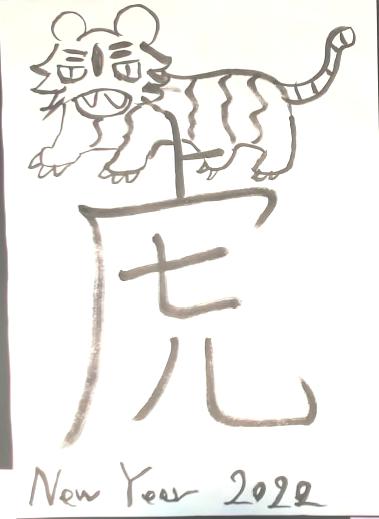 虎
New Year 2022